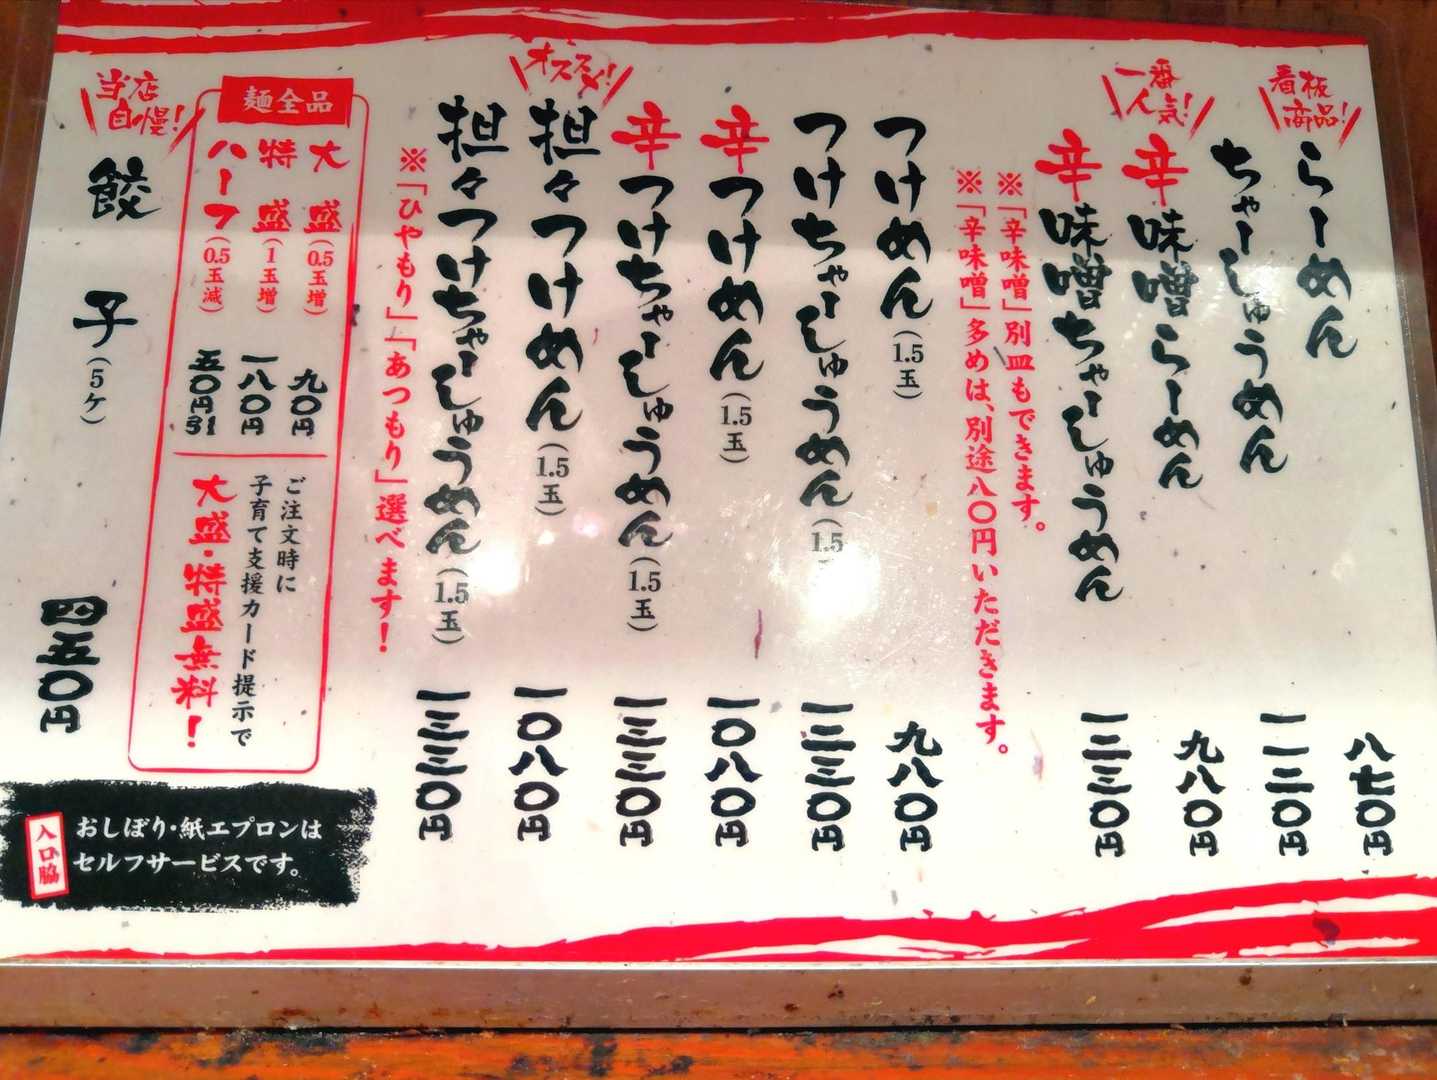 看板商品！
らーめん 八七〇円
ちゃーしゅうめん 一一二〇円
一番人気！
辛味噌らーめん 九八〇円
辛味噌ちゃーしゅうめん 一二三〇円
※「辛味噌」別皿もできます。
※「辛味噌」多めは、別途八〇円いただきます。
つけめん（1.5玉） 九八〇円
つけちゃーしゅうめん（1.5 一二三〇円
辛つけめん（1.5玉） 一〇八〇円
辛つけちゃーしゅうめん（1.5玉） 一三三〇円
オススメ！
担々つけめん（1.5玉） 一〇八〇円
担々つけちゃーしゅうめん（1.5玉） 一三三〇円
※「ひやもり」「あつもり」選べます！
麺全品
大盛（0.5玉増） 九〇円
特盛（1玉増） 一八〇円
ハーフ（0.5玉減） 五〇円引
ご注文時に
子育て支援カード提示で
大盛・特盛無料！
当店自慢！
餃子（5ケ） 四五〇円
入口脇
おしぼり・紙エプロンは
セルフサービスです。